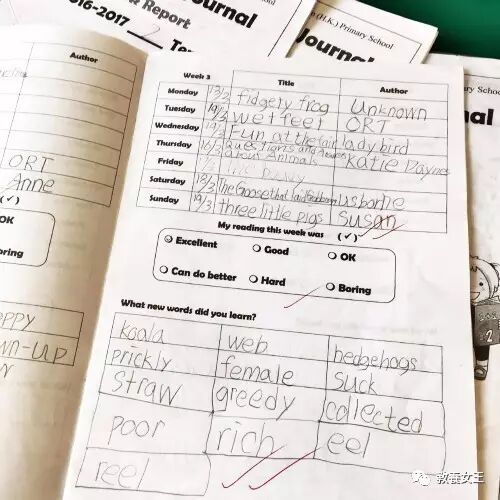 2016-2017
& Report
Journal
(H.K.) Primary School
Journal
Author
ORT
Anne
(✓)
OK
Boring
Week 3
Title
Author
Monday 13/3 fidgety frog Unknown
Tuesday wet feet ORT
Wednesday Fun at the fair ladybird
Thursday 16/3 Questions and Answers about Animals Katie Daynes
Friday
Saturday The Goose that laid usborne
Sunday 19/3 three little pigs Susan
My reading this week was (✓)
Excellent
Good
OK
Can do better
Hard
Boring
What new words did you learn?
koala web hedgehogs
prickly female suck
straw greedy collected
poor rich eel
reel
教养女王